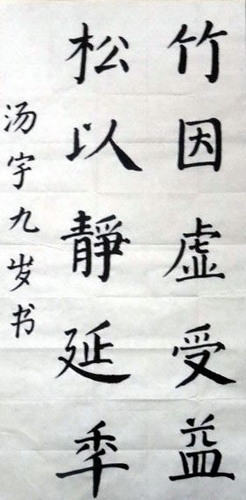 竹因虚受益
松以静延年
汤宇九岁书